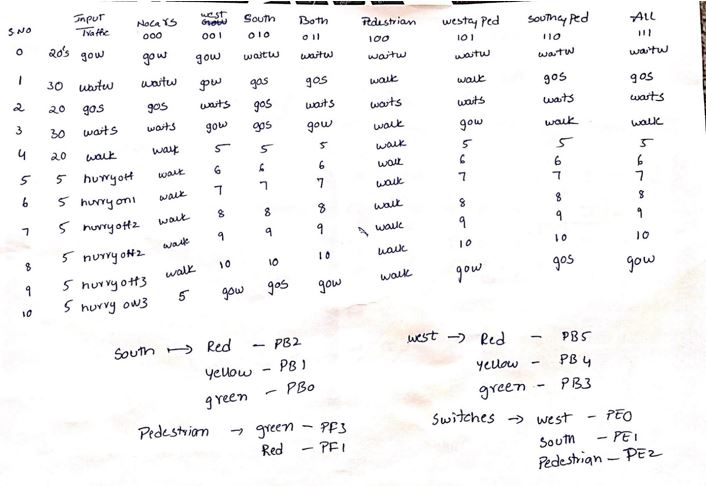 S.NO Input Traffic No cars 000 west 001 South 010 Both 011 Pedestrian 100 west & Ped 101 south & Ped 110 All 111
0 20's gow gow gow waitw waitw waitw waitw waitw waitw
1 30 waitw waitw gow gos gos walk walk gos gos
2 20 gos gos waits gos waits waits waits waits waits
3 30 waits waits gow gos gow walk gow walk walk
4 20 walk walk 5 5 5 walk 5 5 5
5 5 hurryoff walk 6 6 6 walk 6 6 6
6 5 hurryon1 walk 7 7 7 walk 7 7 7
7 5 hurryoff2 walk 8 8 8 walk 8 8 8
8 5 hurryoff2 walk 9 9 9 walk 9 9 9
9 5 hurryoff3 walk 10 10 10 walk 10 10 10
10 5 hurry ow3 5 gow gos gow walk gow gos gow
South → Red - PB2
yellow - PB1
green - PB0
west → Red - PB5
yellow - PB4
green - PB3
Pedestrian → green - PF3
Red - PF1
Switches → west - PE0
South - PE1
Pedestrian - PE2